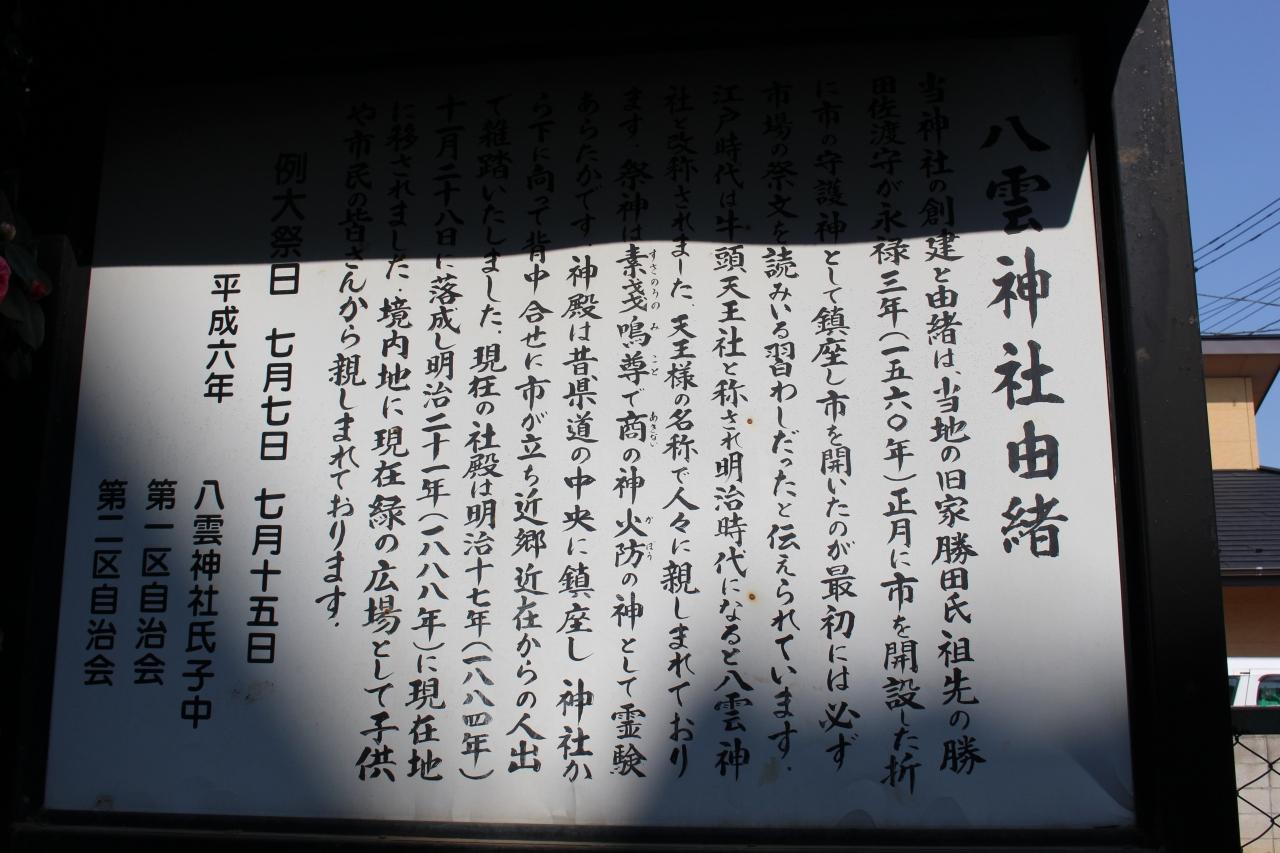 八雲神社由緒
当神社の創建と由緒は、当地の旧家勝田氏祖先の勝
田佐渡守が永禄三年(一五六〇年)正月に市を開設した折
に市の守護神として鎮座し市を開いたのが最初には必ず
市場の祭文を読みいる習わしだったと伝えられています.
江戸時代は牛頭天王社と称され明治時代になると八雲神
社と改称されました、天王様の名称で人々に親しまれており
ます.祭神は素戔嗚尊で商の神火防の神として霊験
すさのうのみことあきないかぼう
あらたかです.神殿は昔県道の中央に鎮座し神社か
ら下に向って背中合せに市が立ち近郷近在からの人出
で雑踏いたしました、現在の社殿は明治十七年(一八八四年)
十一月二十八日に落成し明治二十一年(一八八八年)に現在地
に移されました.境内地に現在緑の広場として子供
や市民の皆さんから親しまれております.
例大祭日 七月七日 七月十五日
平成六年
八雲神社氏子中
第一区自治会
第二区自治会